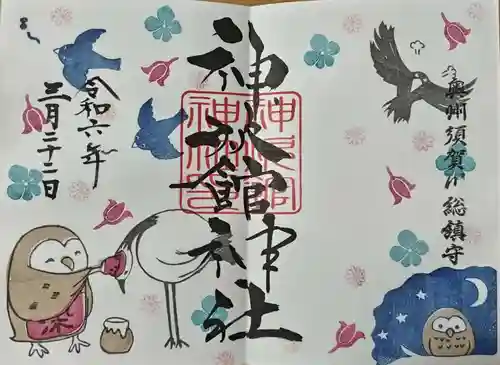 奥州須賀川総鎮守
神炊館神社
令和六年
三月二十二日